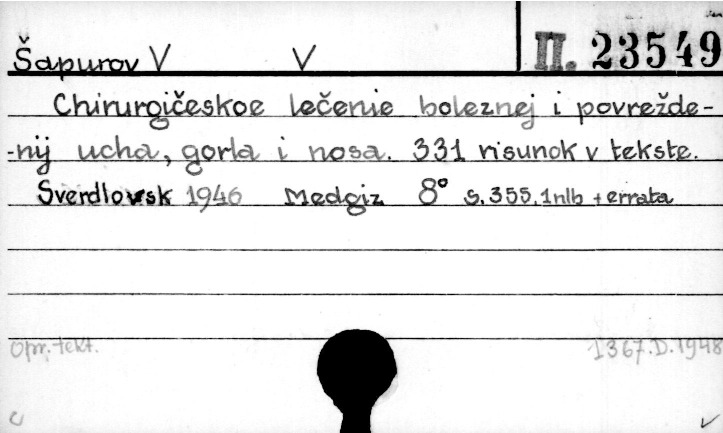 Šapurov V V II. 23549
Chirurgičeskoe lečenie boleznej i povrežde-
-nij ucha, gorla i nosa. 331 risunok v tekste.
Sverdlovsk 1946 Medgiz 8° s. 355, 1nlb + errata
Opr. tekt. 1367.D.1948